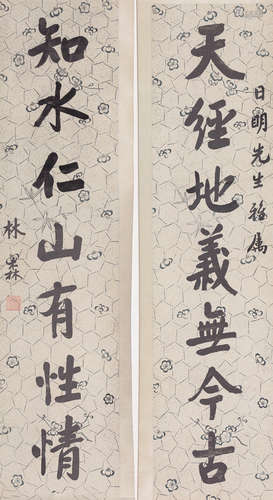 日明先生雅属
天經地義無今古
知水仁山有性情
林森